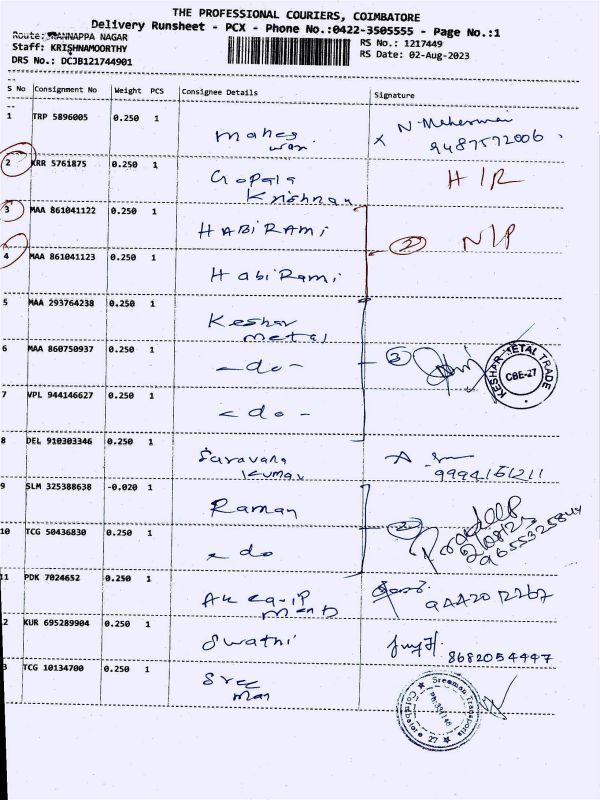 THE PROFESSIONAL COURIERS, COIMBATORE
Delivery Runsheet - PCX - Phone No.:0422-3505555 - Page No.:1
Route: RANNAPPA NAGAR
Staff: KRISHNAMOORTHY
DRS No.: DCJB121744901
RS No.: 1217449
RS Date: 02-Aug-2023
S No Consignment No Weight PCS Consignee Details Signature
1 TRP 5896005 0.250 1 Mahes wari X N. Maheswari 9487572006
2 KRR 5761875 0.250 1 Gopala Krishnan H/R
3 MAA 861041122 0.250 1 HABiRAMi (2) N/P
4 MAA 861041123 0.250 1 HabiRami
5 MAA 293764238 0.250 1 Keshar metal
6 MAA 860750937 0.250 1 -do- (3) KESHAR METAL TRADE CBE-27
7 VPL 944146627 0.250 1 -do-
8 DEL 910303346 0.250 1 Saravana Kumar 9994151211
9 SLM 325388638 -0.020 1 Raman
10 TCG 50436830 0.250 1 do 2 9655325844
11 PDK 7024652 0.250 1 AK equip ments
2 KUR 695289904 0.250 1 Swathi 8682054447
3 TCG 10134700 0.250 1 Sree man Sreeman Transports Coimbatore 27